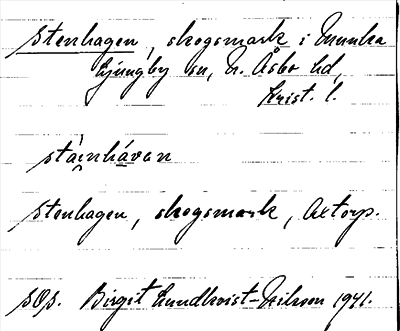 Stenhagen, skogsmark i Munka
Ljungby sn, N. Åsbo hd,
Krist. l.
stainhávan
Stenhagen, skogsmark, Axtorp.
SOS. Birgit Lundkvist-Nilsson 1941.